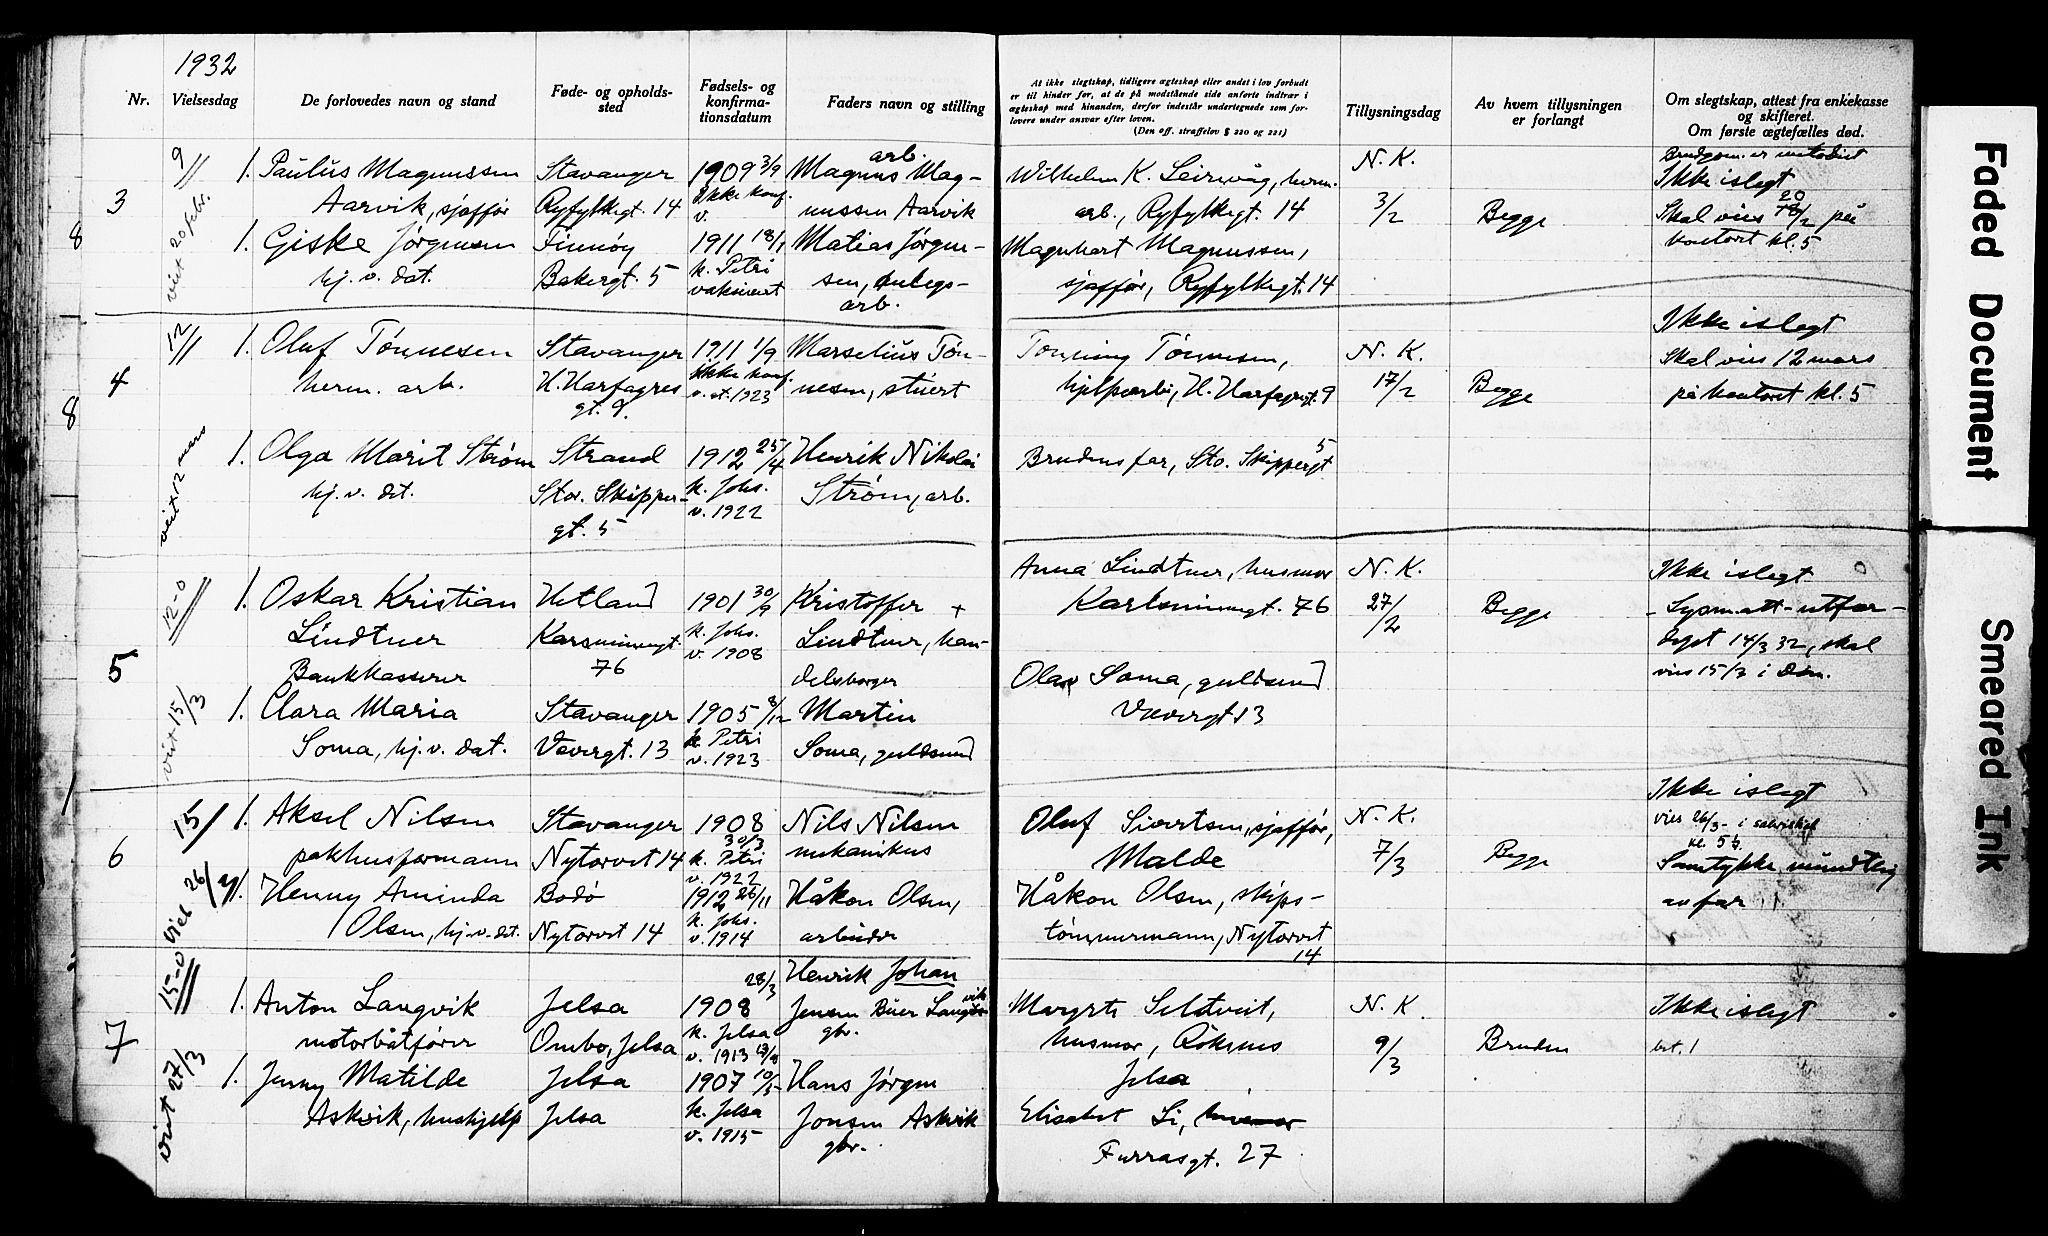 1932
Nr.
Vielsesdag
De forlovedes navn og stand
Føde- og opholds-
sted
Fødsels- og
konfirma-
tionsdatum
Faders navn og stilling
At ikke slegtskap, tidligere ægteskap eller andet i lov forbudt
er til hinder for, at de på modstående side anførte indtrær i
ægteskap med hinanden, derfor indestår undertegnede som for-
lovere under ansvar efter loven.
(Den off. straffelov § 220 og 221)
Tillysningsdag
Av hvem tillysningen
er forlangt
Om slegtskap, attest fra enkekasse
og skifteret.
Om første ægtefælles død.
3
9
viet 20 febr.
1. Paulus Magnussen
Aarvik, sjaffør
Stavanger
Ryfylkegt. 14
1909 3/9
Ikke konf.
v.
arb.
Magnus Mag-
nussen Aarvik
1. Giske Jørgensen
hj. v. dat.
Finnøy
Bakergt. 5
1911 18/1
k. Petri
vaksinert
Matias Jørgen-
sen, anlegs-
arb.
Wilhelm K. Leirvåg, herm.
arb., Ryfylkegt. 14
Magnhart Magnussen,
sjaffør, Ryfylkegt. 14
N. K.
3/2
Begge
Brudgom. er metodist
Ikke i slegt
20
Skal vies 18/2 på
kontort kl. 5
8
4
12
viet 12 mars
1. Oluf Tønnesen
herm. arb.
Stavanger
H. Harfagres
gt. 9.
1911 1/9
Ikke konf.
v. at. 1923
Marselius Tøn-
nesen, stuert
1. Olga Marit Strøm
hj. v. dat.
Strand
Stor. Skipper-
gt. 5
1912 25/4
k. Johs.
v. 1922
Henrik Nikolai
Strøm, arb.
Tønning Tønnesen,
hjelpearb., H. Harfagresgt. 9
Brudens far, Sto. Skippergt 5
N. K.
17/2
Begge
Ikke i slegt
Skal vies 12 mars
på kontoret kl. 5
8
5
12-0
viet 15/3
1. Oskar Kristian
Lindtner
Bankkasserer
Hetland
Karsminnegt.
76
1901 30/9
k. Johs.
v. 1908
Kristoffer +
Lindtner, han-
delsborger
1. Clara Maria
Soma, hj. v. dat.
Stavanger
Vevergt. 13
1905 2/12
k. Petri
v. 1923
Martin
Soma, guldsmed
Anna Lindtner, husmor
Karlsminnegt. 76
Olav Soma, guldsmed
Vævergt 13
N. K.
27/2
Begge
Ikke i slegt
Lysn.att. utfær-
diget 14/3 32, skal
vies 15/3 i Dom.
6
15/
viet 26/3
1. Aksel Nilsen
pakhusformann
Stavanger
Nytorvet 14
1908
30/3
k. Petri
v. 1922
Nils Nilsen
mekanikus
1. Henny Aminda
Olsen, hj. v. dat.
Bodø
Nytorvet 14
1912 26/11
k. Johs.
v. 1914
Håkon Olsen,
arbeider
Oluf Sivertsen, sjaffør,
Malde
Håkon Olsen, skips-
tømmermann, Nytorvet
14
N. K.
7/3
Begge
Ikke i slegt
vies 26/3 - i sakristiet
kl. 5 1/2
Samtykke mundtlig
av far
7
15-0
viet 27/3
1. Anton Langvik
motorbåtfører
Jelsa
Ombo, Jelsa
28/3
1908
k. Jelsa
v. 1913 13/9
Henrik Johan
Jensen Buer Langvik
gbr.
1. Jenny Matilde
Askvik, hushjelp
Jelsa
Jelsa
1907 10/5
k. Jelsa
v. 1915
Hans Jørgen
Jonsen Askvik
gbr.
Margrete Seldtveit,
husmor, Røksnes
Jelsa
Elisabet Li, husmor
Furrasgt. 27
N. K.
9/3
Bruden
Ikke i slegt
bet. 1
Faded Document
Smeared Ink